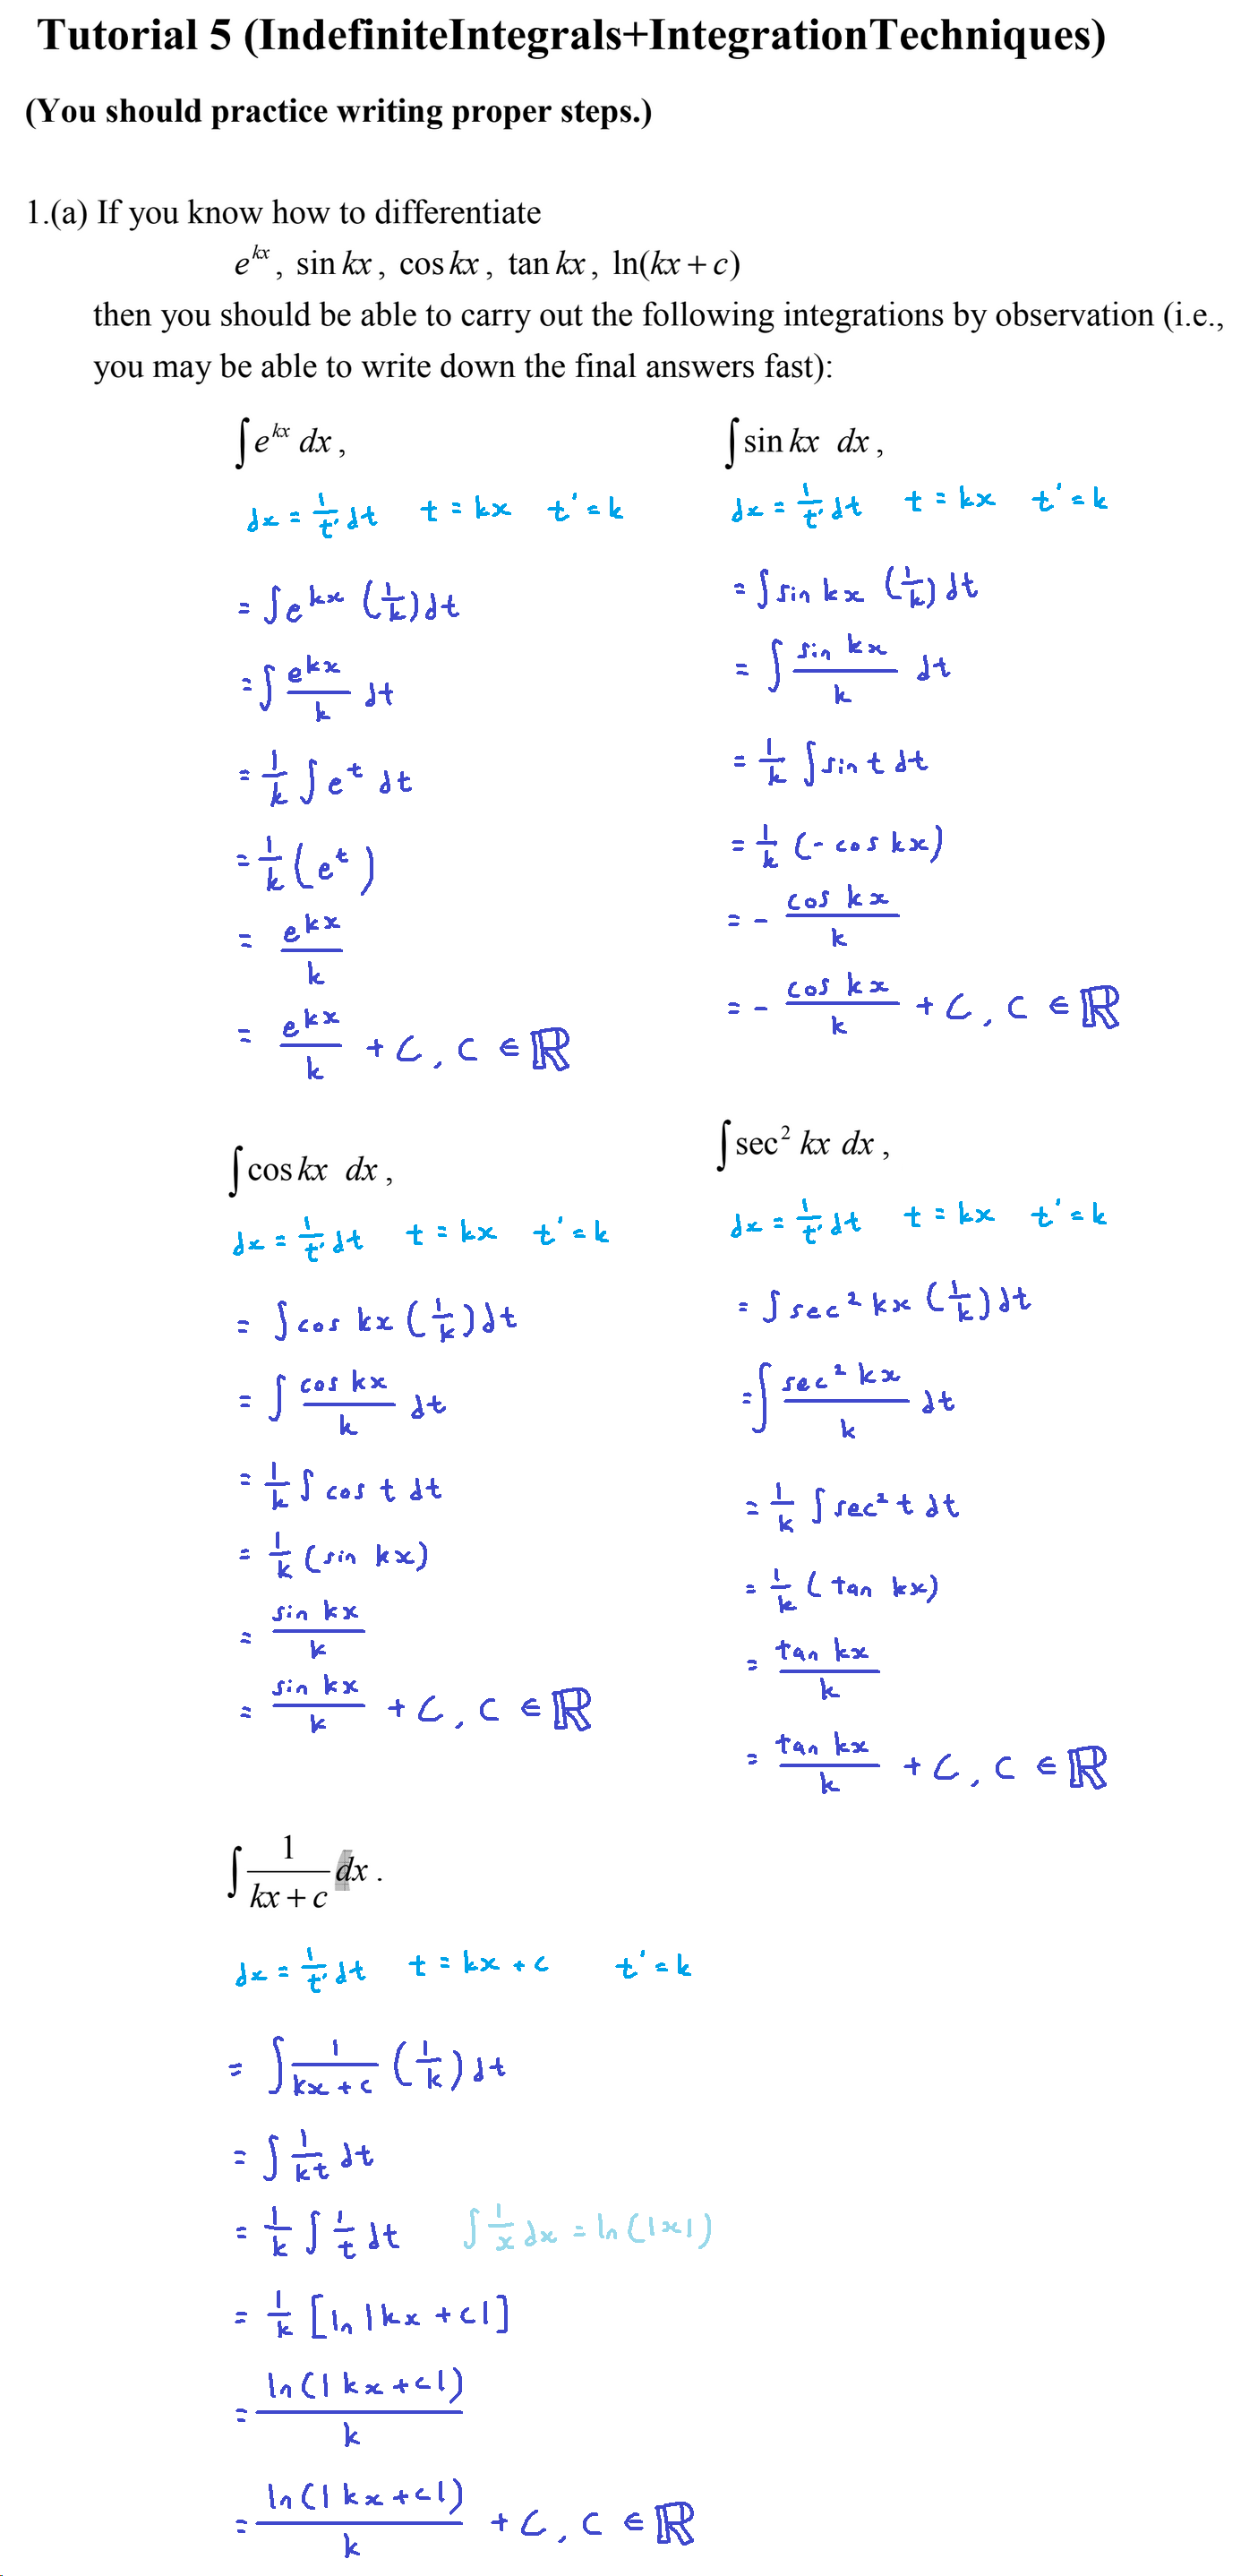 Tutorial 5 (IndefiniteIntegrals+IntegrationTechniques)
(You should practice writing proper steps.)
1.(a) If you know how to differentiate
e^{kx}, sin kx, cos kx, tan kx, ln(kx + c)
then you should be able to carry out the following integrations by observation (i.e.,
you may be able to write down the final answers fast):
∫ e^{kx} dx,
dx = 1/t' dt   t = kx   t' = k
= ∫ e^{kx} (1/k) dt
= ∫ e^{kx}/k dt
= 1/k ∫ e^t dt
= 1/k (e^t)
= e^{kx}/k
= e^{kx}/k + C, C ∈ ℝ
∫ sin kx dx,
dx = 1/t' dt   t = kx   t' = k
= ∫ sin kx (1/k) dt
= ∫ sin kx/k dt
= 1/k ∫ sin t dt
= 1/k (- cos kx)
= - cos kx/k
= - cos kx/k + C, C ∈ ℝ
∫ cos kx dx,
dx = 1/t' dt   t = kx   t' = k
= ∫ cos kx (1/k) dt
= ∫ cos kx/k dt
= 1/k ∫ cos t dt
= 1/k (sin kx)
= sin kx/k
= sin kx/k + C, C ∈ ℝ
∫ sec² kx dx,
dx = 1/t' dt   t = kx   t' = k
= ∫ sec² kx (1/k) dt
= ∫ sec² kx/k dt
= 1/k ∫ sec² t dt
= 1/k (tan kx)
= tan kx/k
= tan kx/k + C, C ∈ ℝ
∫ 1/(kx + c) dx.
dx = 1/t' dt   t = kx + c   t' = k
= ∫ 1/(kx + c) (1/k) dt
= ∫ 1/kt dt
= 1/k ∫ 1/t dt   ∫ 1/x dx = ln(|x|)
= 1/k [ln |kx + c|]
= ln(|kx + c|)/k
= ln(|kx + c|)/k + C, C ∈ ℝ